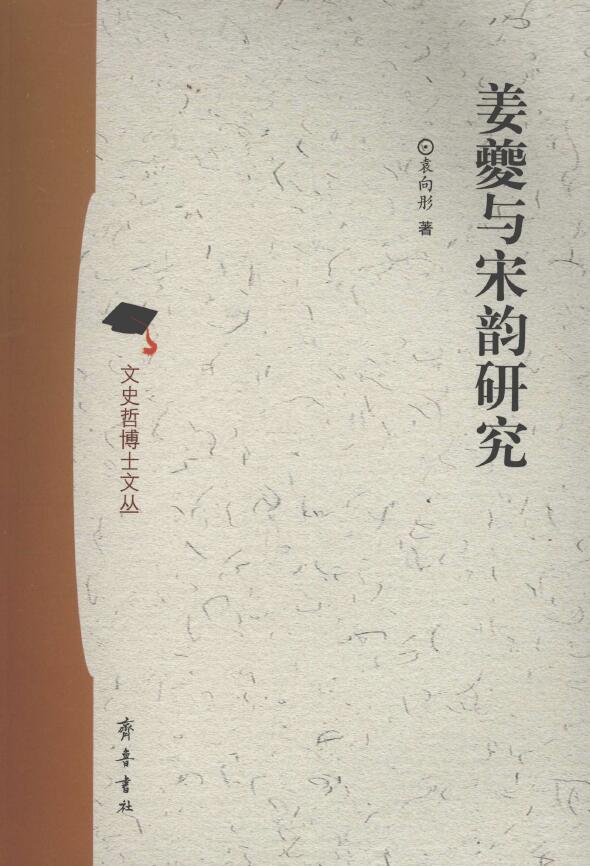 姜夔与宋韵研究
袁向彤 著
文史哲博士文丛
齊魯書社